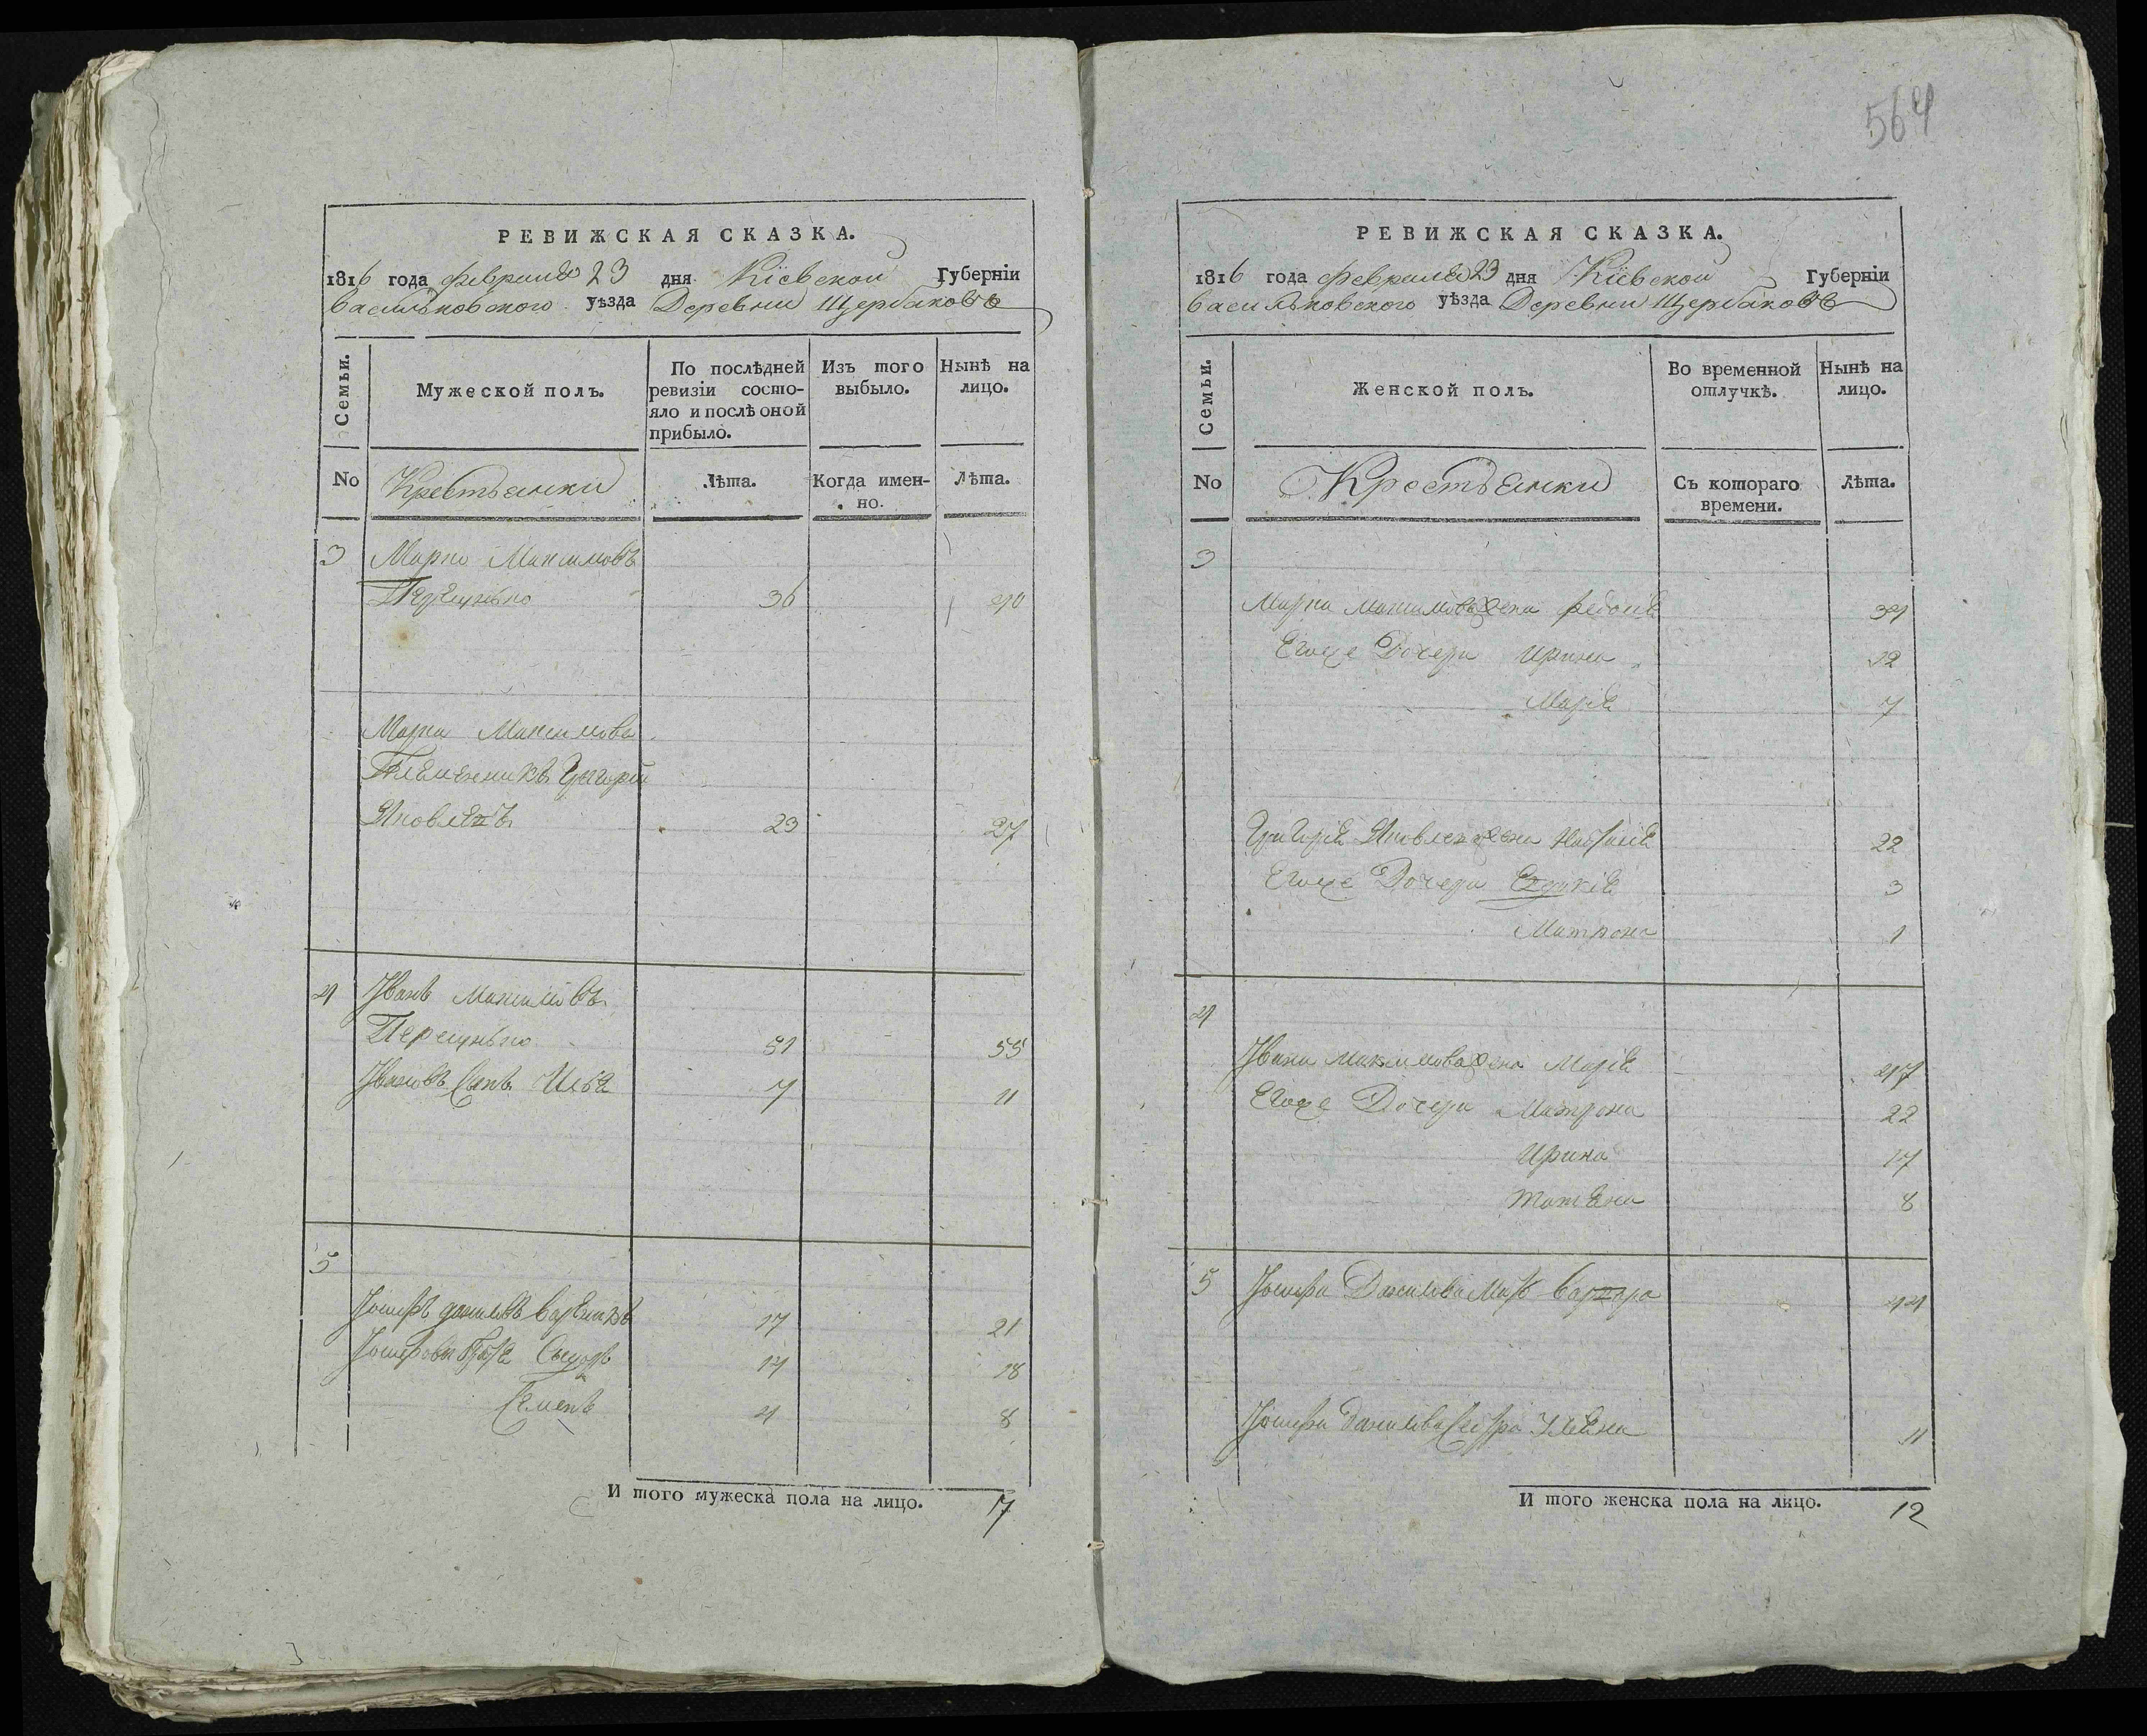 564
РЕВИЖСКАЯ СКАЗКА.
1816 года февраля 23 дня Кіевской Губерніи
Васильковского уѣзда Деревни Щербаковъ
Семьи.
Мужеской полъ.
По послѣдней ревизіи состо-
яло и послѣ оной прибыло.
Изъ того выбыло.
Нынѣ на лицо.
No
Лѣта.
Когда имен-
но.
Лѣта.
3 Марко Максимовъ
36 40
Марка Максимова
Племенникъ Григорій
Яковлевъ 23 27
4 Іванъ Максимовъ
51 55
Івановъ Сынъ Илья 7 11
5
Іосифъ 17 21
Іосифовы Братья 14 18
Семенъ 4 8
И того мужеска пола на лицо. 7
РЕВИЖСКАЯ СКАЗКА.
1816 года февраля 23 дня Кіевской Губерніи
Васильковского уѣзда Деревни Щербаковъ
Семьи.
Женской полъ.
Во временной отлучкѣ.
Нынѣ на лицо.
No
Крестьянки
Съ котораго времени.
Лѣта.
3
Марка Максимова жена 34
Егоже Дочери Ирина 12
Марія 7
Григорія Яковлева жена Настасія 22
Егоже Дочери Евдокія 3
Матрона 1
4
Івана Максимова жена Марія 47
Егоже Дочери Матрона 22
Ирина 17
Татьяна 8
5 Іосифа Данилова Мать Варвара 44
Іосифа Данилова Сестра Уляна 11
И того женска пола на лицо. 12